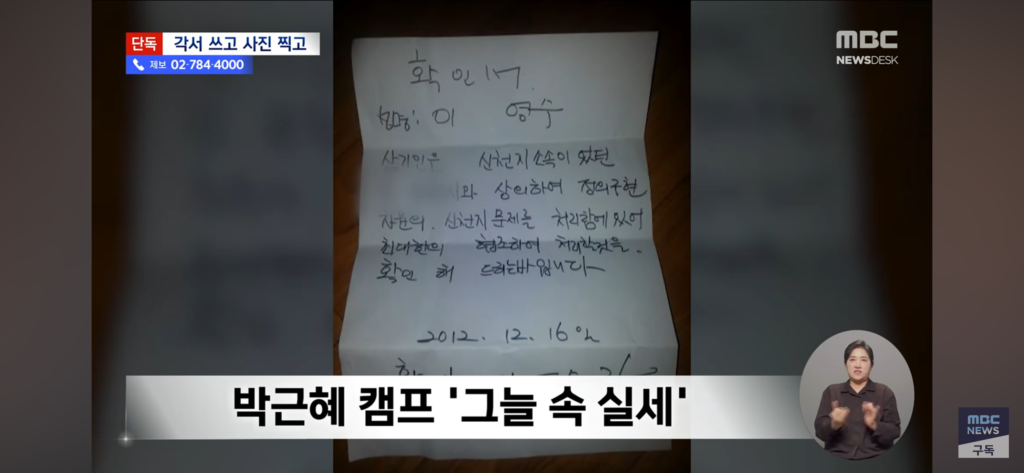 단독 각서 쓰고 사진 찍고
제보 02-784-4000
MBC
NEWSDESK
확인서
성명: 이 영수
상기인은 신천지 소속이 있던
와 상의하여 정의구현
차원의. 신천지 문제를 처리함에 있어
최대한의 협조하여 처리할것을.
확인 해 드리는바입니다
2012. 12. 16일
박근혜 캠프 '그늘 속 실세'
MBC
NEWS
구독